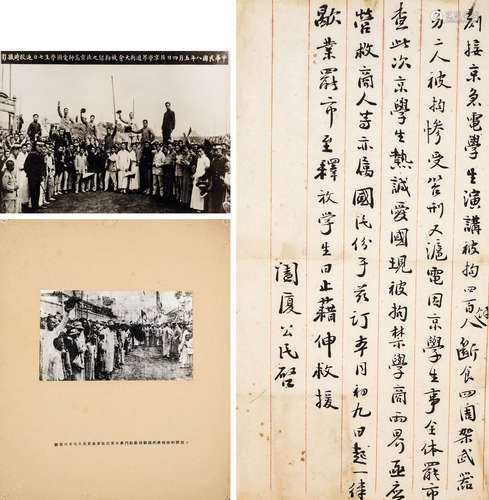 中華民國八年五月四日北京學界遊街大會被拘留之北京高師愛國學生七日返校時撮影
刻接京急電學生演講被拘四百餘人斷食四周架武器
另二人被拘慘受苦刑又滬電因京學生事全体罷市
查此次京學生熱誠愛國現被拘禁學商兩界亟應
營救商人等亦屬國民份子茲訂本月初九日起一律
歇業罷市至釋放學生日止藉伸救援
闔廈公民啓